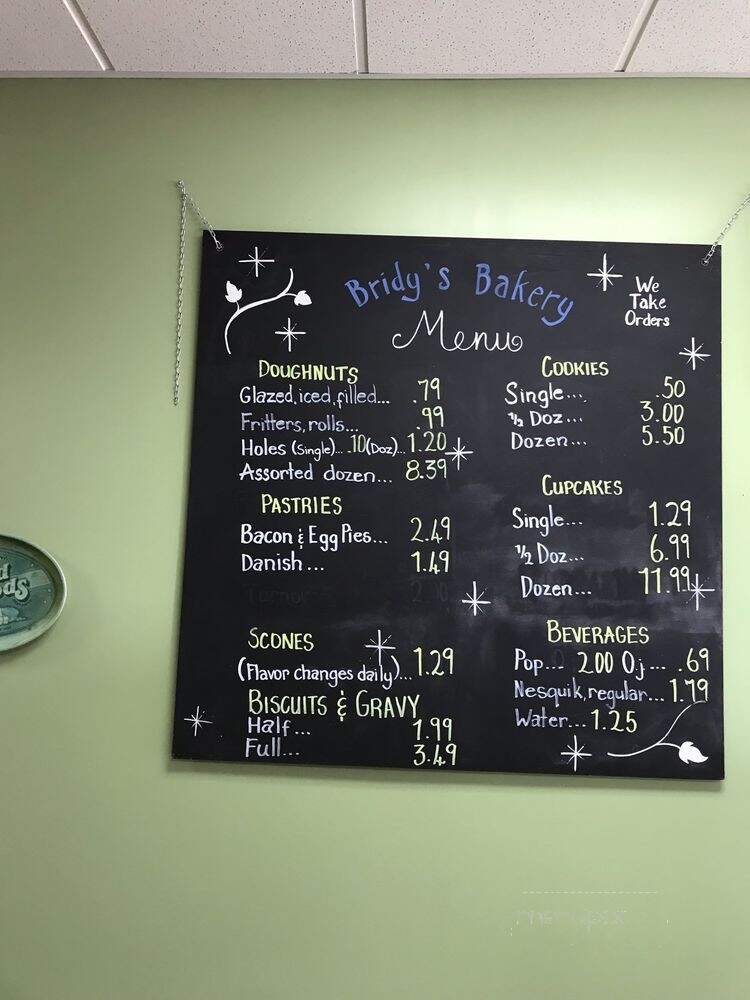 Bridy's Bakery
Menu
We
Take
Orders
DOUGHNUTS
Glazed, iced, filled... .79
Fritters, rolls... .99
Holes (single)... .10 (Doz)... 1.20
Assorted dozen... 8.39
PASTRIES
Bacon & Egg Pies... 2.49
Danish... 1.49
SCONES
(Flavor changes daily)... 1.29
BISCUITS & GRAVY
Half... 1.99
Full... 3.49
COOKIES
Single... .50
1/2 Doz... 3.00
Dozen... 5.50
CUPCAKES
Single... 1.29
1/2 Doz... 6.99
Dozen... 11.99
BEVERAGES
Pop... 2.00 O.j... .69
Nesquik, regular... 1.79
Water... 1.25